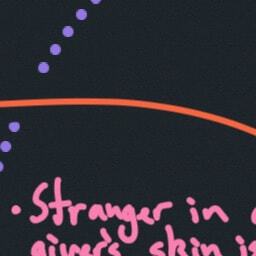 • Stranger in
giver's skin is